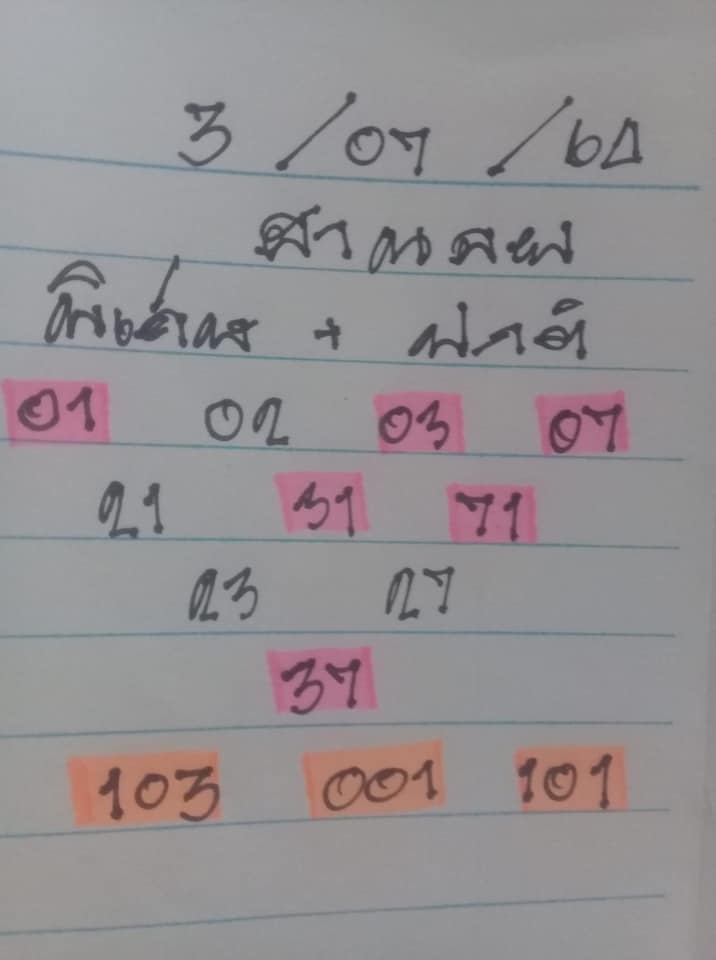 3 /07 /64
ฮานอย
พิเศษ + ปกติ
01 02 03 07
21 31 71
23 27
37
103 001 101